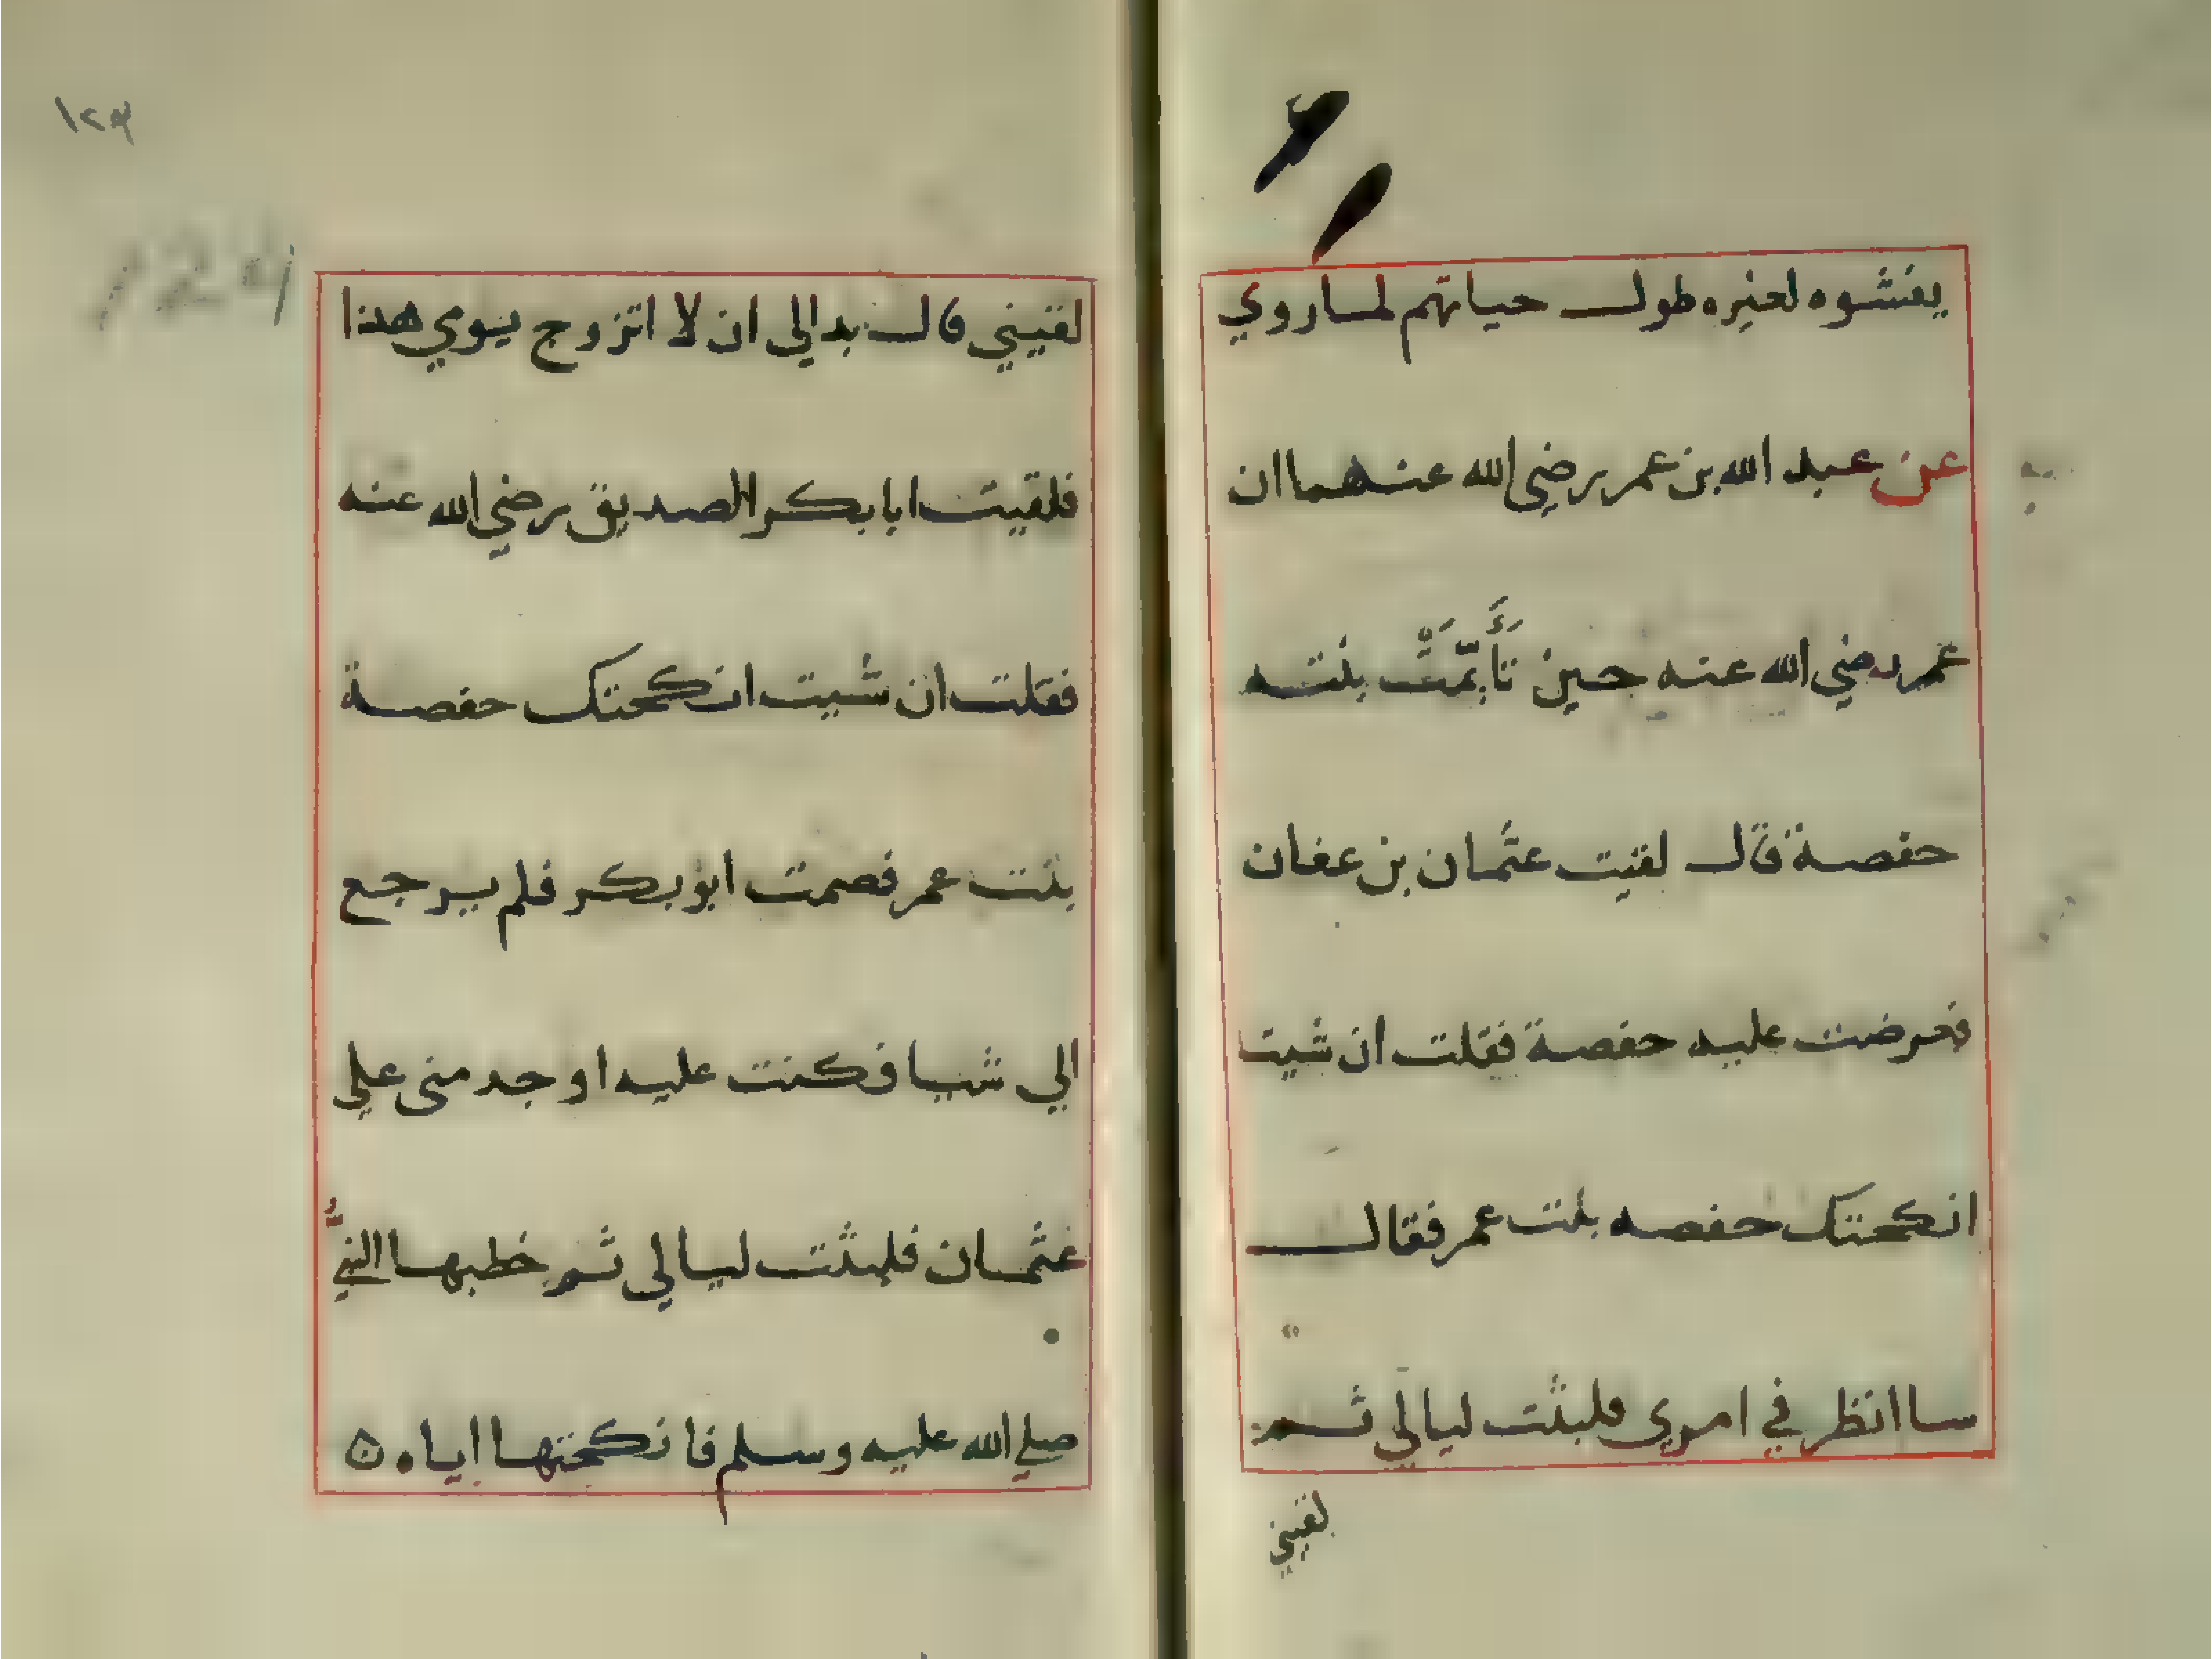 يفشوه لغيره طول حياتهم لما روي
عن عبد الله بن عمر رضي الله عنهما ان
عمر رضي الله عنه حين تَأَيَّمَتْ بنته
حفصة قال لقيت عثمان بن عفان
فعرضت عليه حفصة فقلت ان شيت
انكحتك حفصه بنت عمر فقال
ساانظر في امري فلبثت ليالي ثم
لقيني
١٢٤
124
لقيني قال بدالي ان لا اتزوج يومي هذا
فلقيت ابا بكر الصديق رضي الله عنه
فقلت ان شيت انكحتك حفصة
بنت عمر فصمت ابو بكر فلم يرجع
الي شيا فكنت عليه اوجد مني علي
عثمان فلبثت ليالي ثم خطبها النبيُّ
صلي الله عليه وسلم فانكحتها اياه ۵